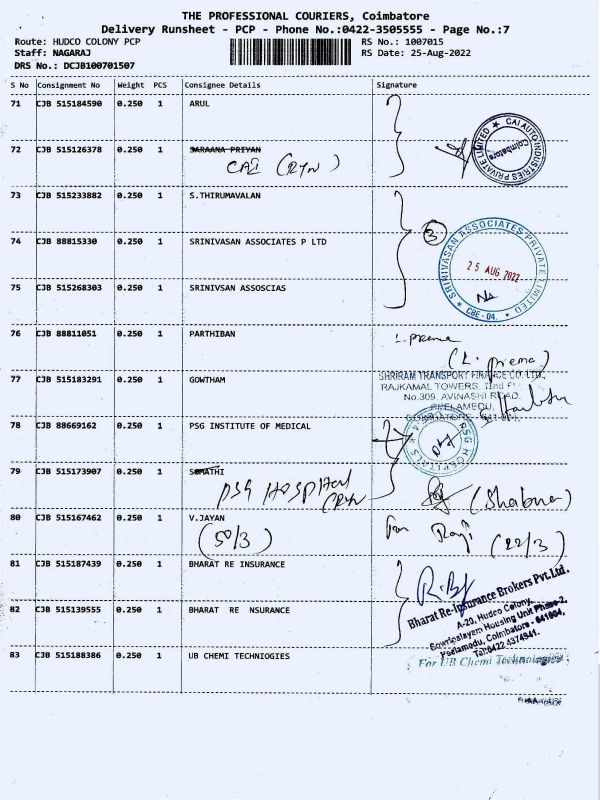 THE PROFESSIONAL COURIERS, Coimbatore
Delivery Runsheet - PCP - Phone No.:0422-3505555 - Page No.:7
Route: HUDCO COLONY PCP RS No.: 1007015
Staff: NAGARAJ RS Date: 25-Aug-2022
DRS No.: DCJB100701507
S No Consignment No Weight PCS Consignee Details Signature
71 CJB 515184590 0.250 1 ARUL
CAI AUTO INDUSTRIES PRIVATE LIMITED
Coimbatore
72 CJB 515126378 0.250 1 SARAANA PRIYAN
CAI
73 CJB 515233882 0.250 1 S.THIRUMAVALAN
3
74 CJB 88815330 0.250 1 SRINIVASAN ASSOCIATES P LTD
SRINIVASAN ASSOCIATES PRIVATE LIMITED
25 AUG 2022
CBE - 04.
75 CJB 515268303 0.250 1 SRINIVSAN ASSOSCIAS
76 CJB 88811051 0.250 1 PARTHIBAN L. prema
(L. prema)
77 CJB 515183291 0.250 1 GOWTHAM
SHRIRAM TRANSPORT FINANCE CO. LTD.,
RAJKAMAL TOWERS,
No.309, AVINASHI ROAD,
PEELAMEDU,
78 CJB 88669162 0.250 1 PSG INSTITUTE OF MEDICAL
PSG HOSPITALS
79 CJB 515173907 0.250 1 SUMATHI
PSG HOSPITAL (Shabna)
80 CJB 515167462 0.250 1 V.JAYAN
(50/3) (22/3)
81 CJB 515187439 0.250 1 BHARAT RE INSURANCE
Bharat Re-Insurance Brokers Pvt.Ltd.
A-20, Hudco Colony,
Sowripalayam Housing Unit Phase-2,
Peelamedu, Coimbatore - 641004,
Tel:0422 4374941.
82 CJB 515139555 0.250 1 BHARAT RE NSURANCE
83 CJB 515188386 0.250 1 UB CHEMI TECHNIOGIES
For UB Chemi Technologies